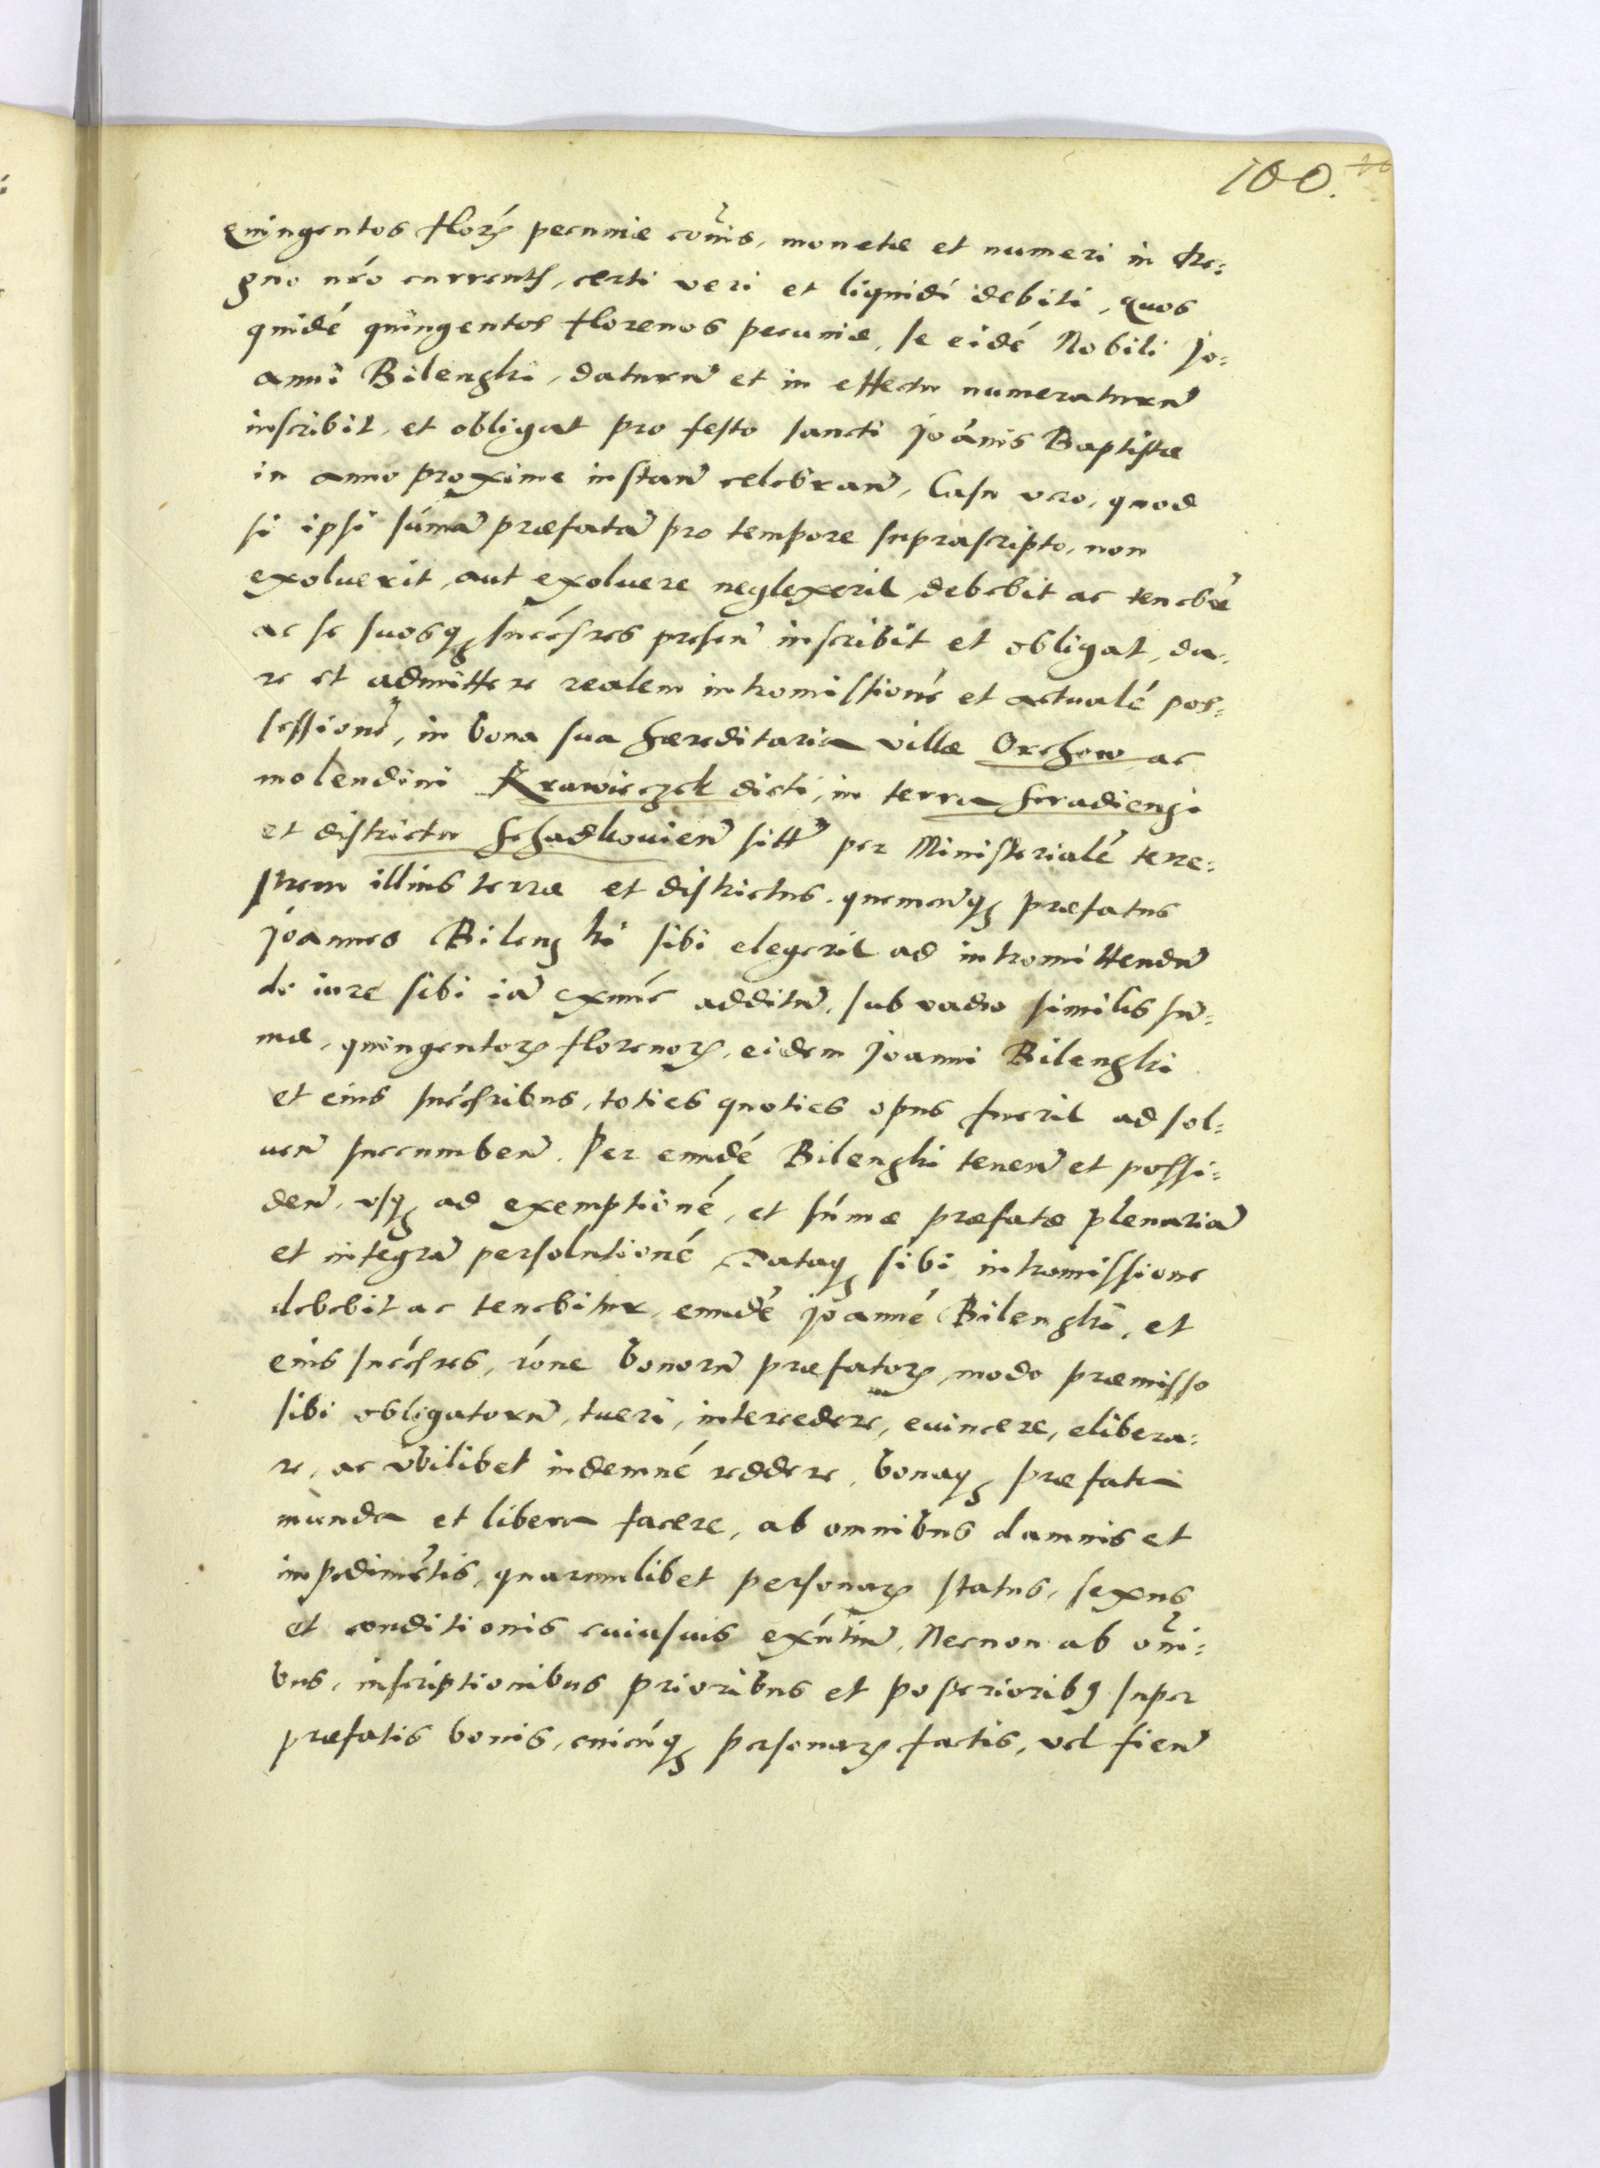 100.
quingentos floreꝝ pecuniæ cōīs, monetæ et numeri in Re:
gno nr̄o currentꝭ, certi veri et liquidi debiti, quos
quidē quingentos florenos pecuniæ, se eidē Nobili Jo:
anni Bilengki, daturū et in effectu numeraturū
inscribit, et obligat pro festo sancti Joānis Baptistæ
in anno proxime instañ celebrañ, Casu vero, quod
si ipsi sūmā præfatā pro tempore suprascripto, non
exoluerit, aut exoluere neglexerit, debebit ac tenebr̄
ac se suosqꝫ succēsres preseñ inscribit et obligat, da:
re et admittere realem intromissionē et actualē pos:
sessionē, in bona sua hæreditaria villæ Orchow ac
molendini Krawieczek dicti, in terra Siradiensi
et districtu Schadkovieñ sitt̄ per Ministerialē terre:
strem illius terræ et districtus, quemcunqꝫ præfatus
Joannes Bilengki sibi elegerit ad intromittendū
de iure sibi iā exnūc additū, sub vadio similis sū:
mæ, quingentoꝝ florenoꝝ, eidem Joanni Bilengki
et eius succēsribus, toties quoties opus fuerit ad sol:
ueñ succumbeñ. Per eundē Bilengki teneñ et possi:
deñ, vsqꝫ ad exemptionē, et sūmæ præfatæ plenariā
et integrā persolutionē, Dataqꝫ sibi intromissione
debebit ac tenebitur, eundē Joannē Bilengki, et
eius succēsres, rōne bonorū præfatoꝝ, modo præmisso
sibi obligatorū, tueri, intercedere, euincere, elibera:
re, ac vbilibet indemnē reddere, bonaqꝫ præfata
munda et libera facere, ab omnibus damnis et
impedimētis, quarumlibet personaꝝ status, sexus
et conditionis cuiusuis exn̄tiū, Necnon ab oīni:
bus, inscriptionibus prioribus et posteriorib⁹ super
præfatis bonis, cuicūqꝫ personaꝝ factis, vel fieñ